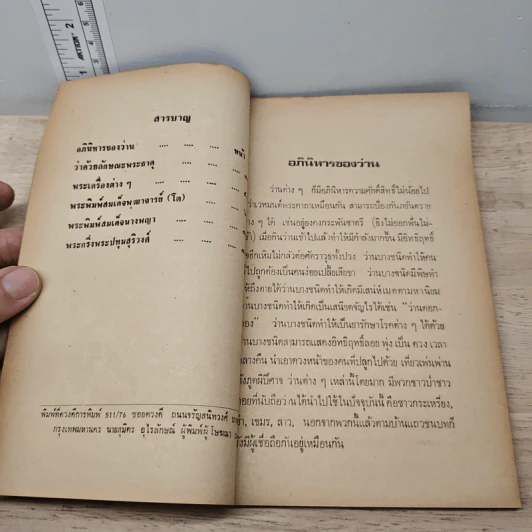 สารบาญ
หน้า
อภินิหารของว่าน .... ....
ว่าด้วยลักษณะพระธาตุ .... ....
พระเครื่องต่าง ๆ .... .... ....
พระพิมพ์สมเด็จพุฒาจารย์ (โต) ....
พระพิมพ์สมเด็จนางพญา .... ....
พระกริ่งพระปทุมสุริวงศ์ .... ....
พิมพ์ที่ดวงดีการพิมพ์ 511/76 ซอยดวงดี ถนนจรัญสนิทวงศ์
กรุงเทพมหานคร นายสุมิตร อุไรลักษณ์ ผู้พิมพ์ผู้โฆษณา
อภินิหารของว่าน
ว่านต่าง ๆ ก็มีอภินิหารความศักดิ์สิทธิ์ไม่น้อยไป
ว่าเวทมนต์พระคาถาเหมือนกัน สามารถป้องกันภยันตราย
ๆ ได้ เช่นอยู่ยงคงกระพันชาตรี (ยิงไม่ออกฟันไม่-
เมื่อกินว่านเข้าไปแล้ว ทำให้มีกำลังมากขึ้น มีอิทธิฤทธิ์
ฮึกเหิมไม่กลัวต่อศัตราวุธทั้งปวง ว่านบางชนิดทำให้คน
ไปถูกต้องเป็นคนง่อยเปลี้ยเสียขา ว่านบางชนิดมีพิษทำ
ให้ถึงตายได้ว่านบางชนิดทำให้เกิดมีเสน่ห์เมตตามหานิยม
ว่านบางชนิดทำให้เกิดเป็นเสนียดจัญไรได้เช่น "ว่านดอก-
ทอง" ว่านบางชนิดทำให้เป็นยารักษาโรคต่าง ๆ ได้ด้วย
ว่านบางชนิดสามารถแสดงอิทธิฤทธิ์ลอย พุ่ง เป็น ดวง เวลา
กลางคืน นำเอาดวงหน้าของคนที่ปลูกไปด้วย เที่ยวเพ่นพ่าน
ภูตผีปีศาจ ว่านต่าง ๆ เหล่านี้โดยมาก มีพวกชาวป่าชาว
ดอยที่นับถือว่านได้นำไปใช้ในปัจจุบันนี้ คือชาวกระเหรี่ยง,
พม่า, เขมร, ลาว, นอกจากพวกนี้แล้วตามบ้านแถวชนบทก็
ยังมีผู้เชื่อถือกันอยู่เหมือนกัน